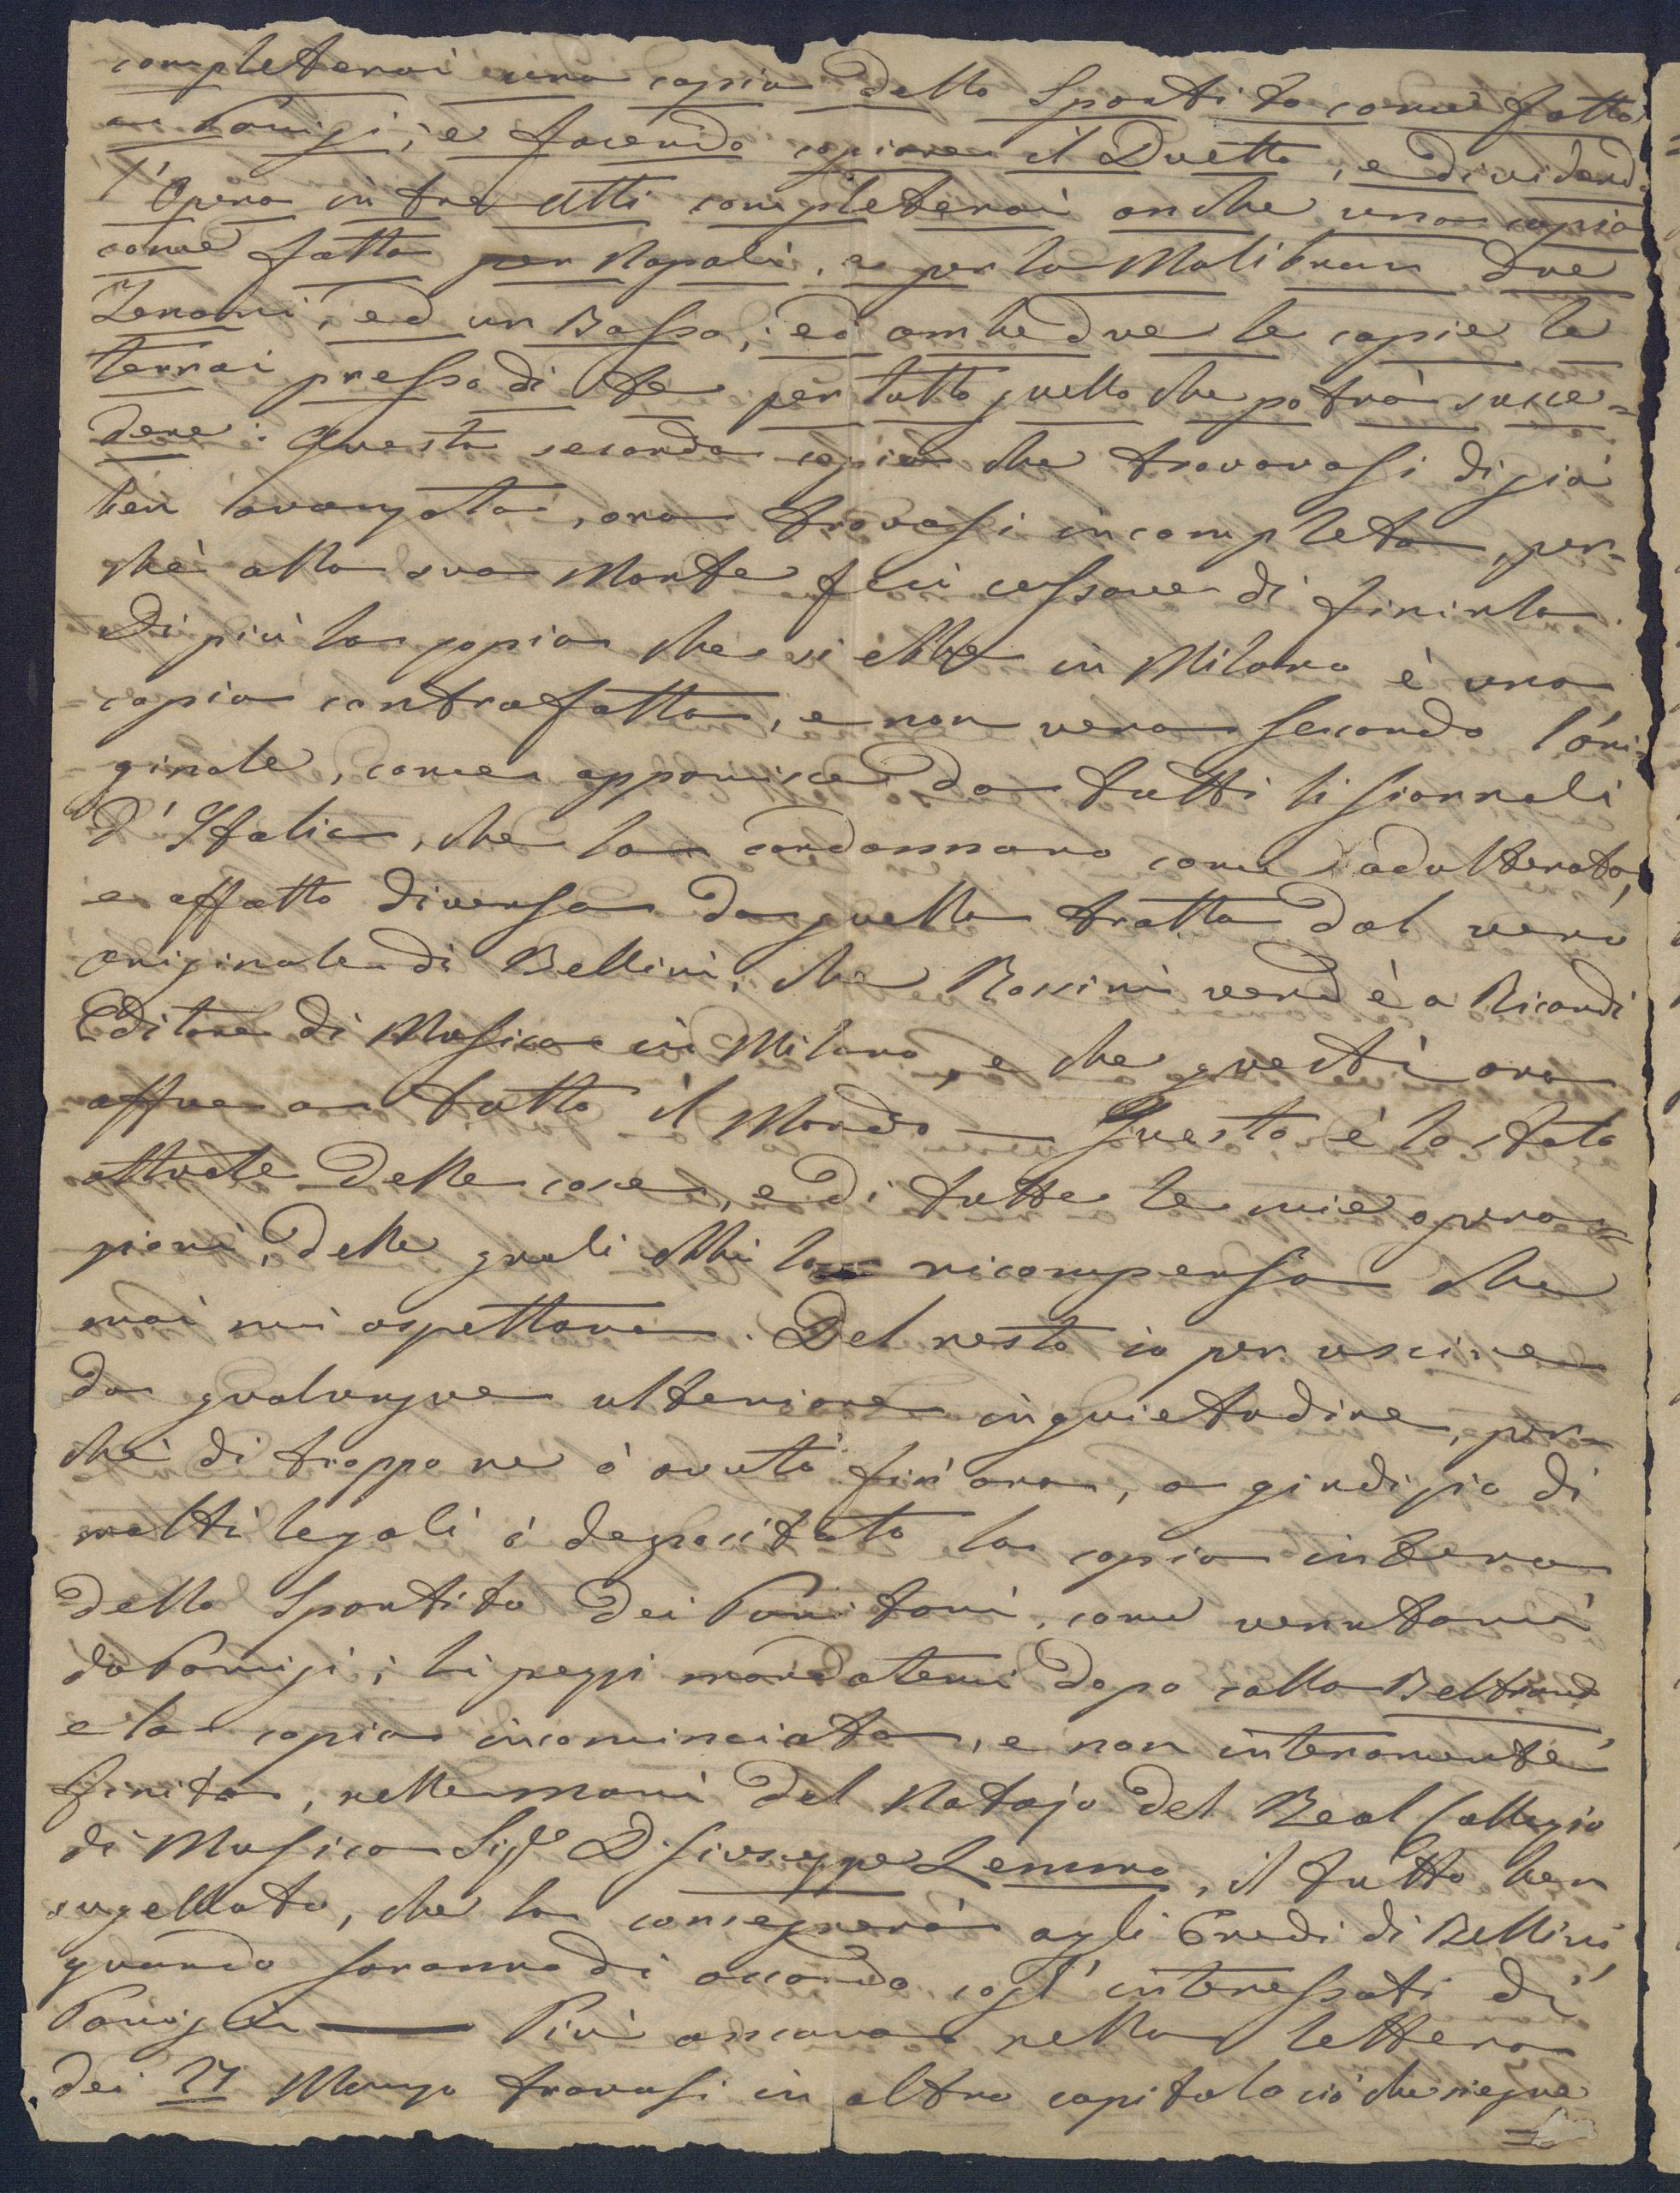 completerai una copia dello Spartito come fatto
a Parigi; e facendo copiare il Duetto, e dividendo
l'Opera in tre Atti completerai anche una copia
come fatta per Napoli, e per la Malibran due
Tenori, ed un Basso; ed ambedue le copie le
terrai presso di te per tutto quello che potrà succe=
dere: Questa seconda copia che trovavasi digià
ben avanzata, ora trovasi incompleta, per-
chè alla sua Morte feci cessare di finirla.
Di più la copia che si ebbe in Milano è una
copia contrafatta, e non vera secondo l'ori-
ginale, come apparisce da tutti li Giornali
d'Italia, che la condannano come adulterata,
e affatto diversa da quella tratta dal vero
originale di Bellini, che Rossini vendè a Ricordi
Editore di Musica in Milano, e che questi ora
offre a tutto il Mondo — Questo è lo stato
attuale delle cose, e di tutte le mie opera=
zioni, delle quali ebbi la ricompensa che
mai mi aspettava. Del resto io per uscire
da qualunque ulteriore inquietudine, per-
chè di troppo ne ò avuta fin'ora, a giudizio di
molti legali ò depositato la copia intera
dello Spartito dei Puritani, come venutomi
da Parigi; li pezzi mandatemi dopo colla Beltrand
e la copia incominciata, e non interamente
finita, nelle mani del Notajo del Real Collegio
di Musica Sigre D. Giuseppe Lemmo, il tutto ben
sugellato, che la consegnerà agli Eredi di Bellini,
quando saranno di accordo cogl'interessati di
Parigi — Più ancora nella lettera
dei 27 Marzo trovasi in altro capitolo ciò che siegue